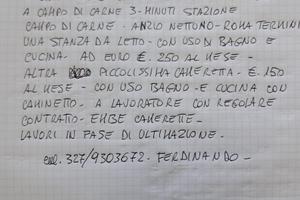 A CAMPO DI CARNE 3-MINUTI STAZIONE
CAMPO DI CARNE - ANZIO NETTUNO - ROMA TERMINI
UNA STANZA DA LETTO - CON USO DI BAGNO E
CUCINA - AD EURO €. 250 AL MESE -
ALTRA PICCOLISSIMA CAMERETTA - €. 150
AL MESE - CON USO BAGNO - E CUCINA CON
CAMINETTO - A LAVORATORE CON REGOLARE
CONTRATTO - EMBE CAMERETTE -
LAVORI IN FASE DI ULTIMAZIONE -
cell. 327/9303672 - FERDINANDO -